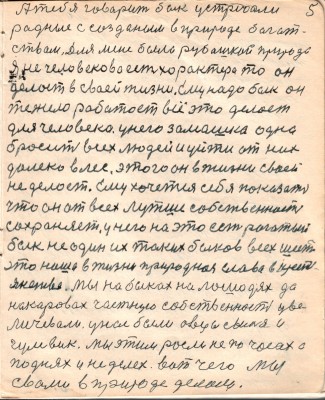 5
А тебя говарит бык устроали
радные с созданым в природе багат-
ствам. для мне быть рубашкой природа
я не человековает характера то он
делоет в своей жизни. ему надо бык он
тежело работоет всё это делоет
для человека. у него замашка одна
бросить всех людей и уйти от них
далеко в лес. этого он в жизни своей
не делоет. ему хочется себя показать
что он от всех лутше собственность
сохраняет, у него на это есть рогатый
бык не один их таких быков всех шесть
это наша в жизни природная слава в крест-
янстве. мы на быках на лошодях да
на каровах частную собственность уве
личевали. у нас были овцы свинья и
гумвик. мы этим росли не по часах а
по днях и неделех. вот чего мы
свами в природе делаем.